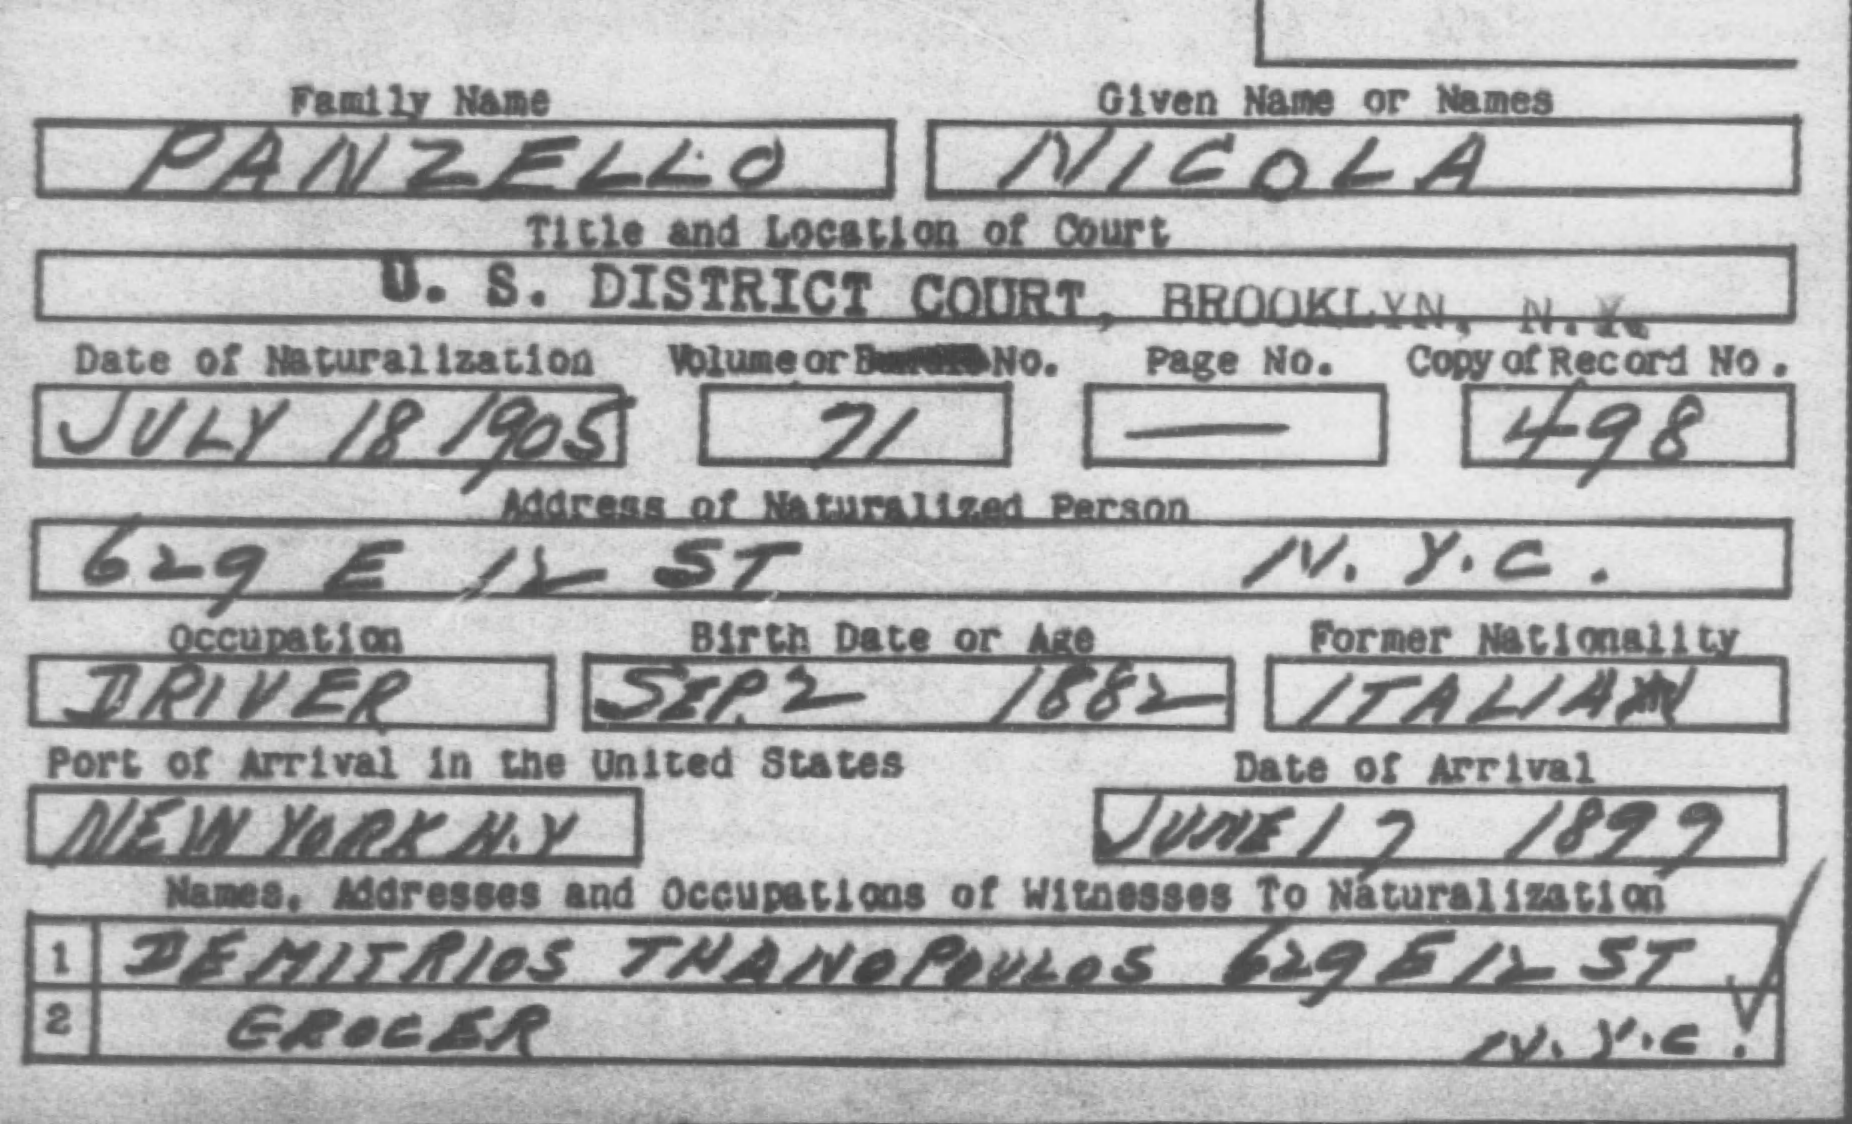 Family Name Given Name or Names
PANZELLO NICOLA
Title and Location of Court
U. S. DISTRICT COURT, BROOKLYN, N.Y.
Date of Naturalization Volume or No. Page No. Copy of Record No.
JULY 18 1905 71 — 498
Address of Naturalized Person
629 E 12 ST N.Y.C.
Occupation Birth Date or Age Former Nationality
DRIVER SEP. 2 1882 ITALIAN
Port of Arrival in the United States Date of Arrival
NEW YORK N.Y JUNE 17 1899
Names, Addresses and Occupations of Witnesses To Naturalization
1 DEMITRIOS THANOPOULOS 629 E 12 ST
2 GROCER N.Y.C.